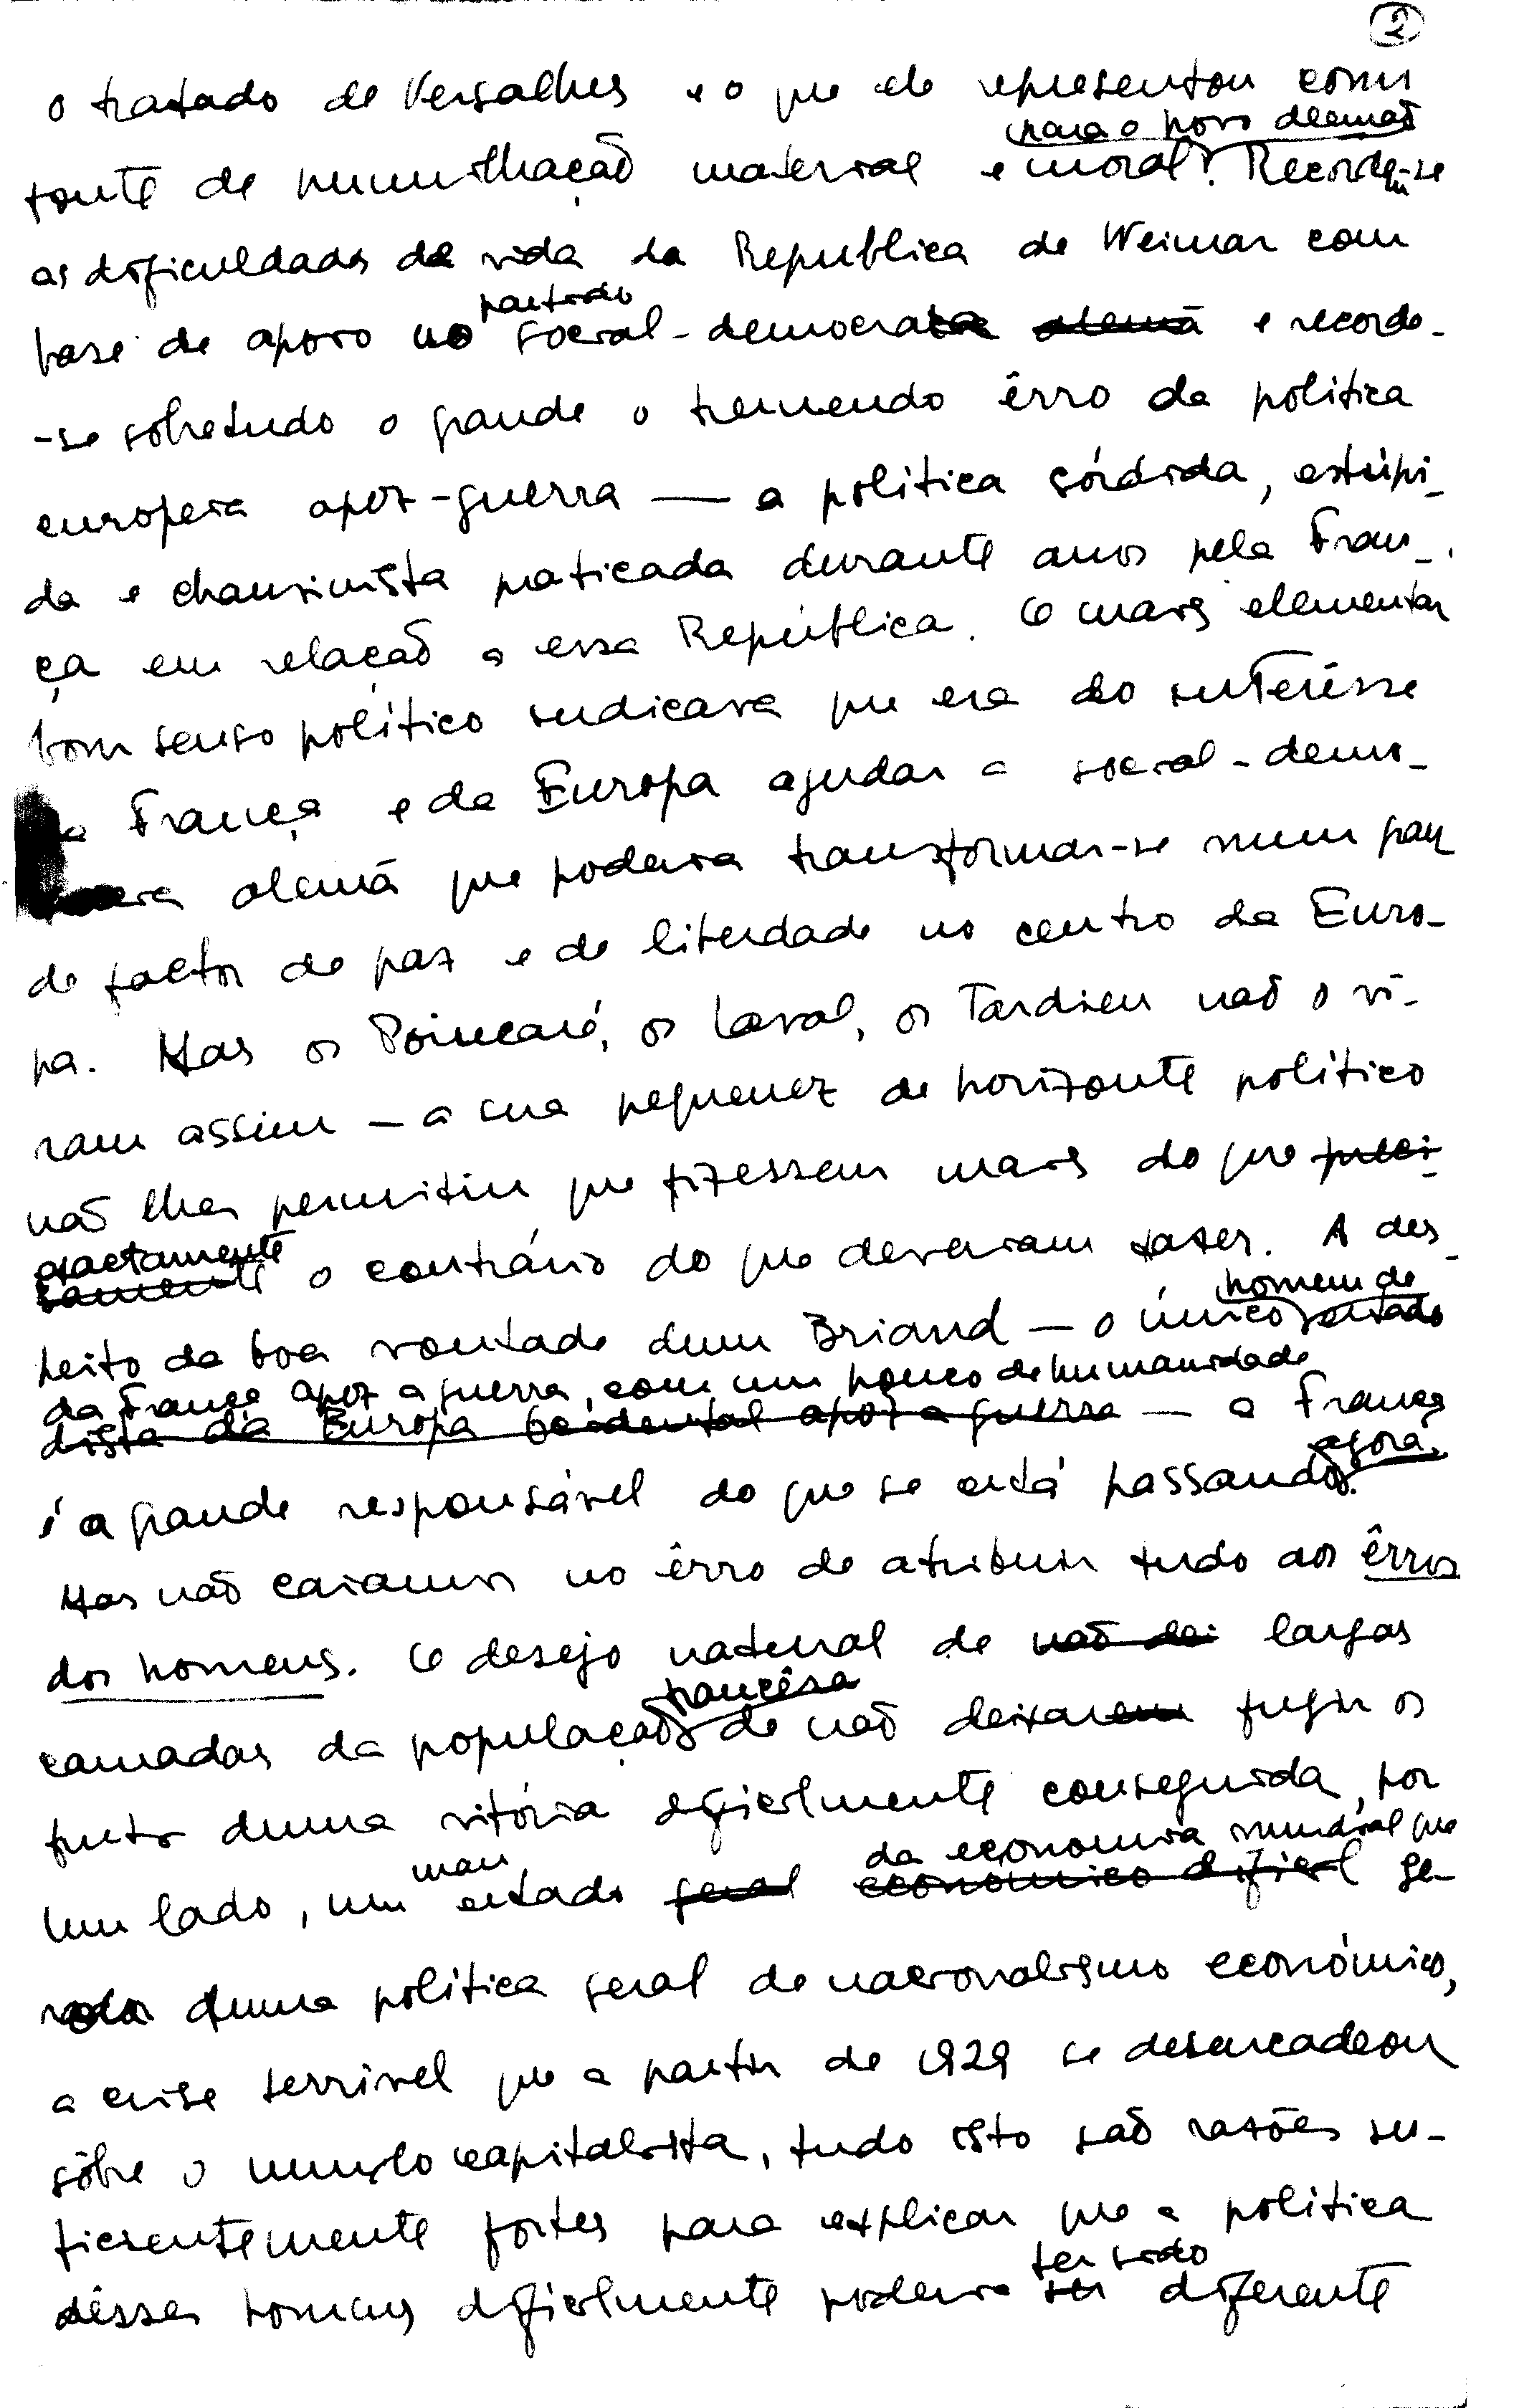 2
o tratado de Versalhes e o que ele representou como
para o povo alemão
fonte de humilhação material e moral? Recorde-se
as dificuldades de vida da Republica de Weimar com
partido
base de apoio no social-democrata alemã e recorde-
-se sobretudo o grande o tremendo êrro da politica
europeia apoz-guerra — a política sórdida, estúpi-
da e chauvinista praticada durante anos pela Fran-
ça em relação a essa República. O mais elementar
bom senso político indicava que era do interêsse
da França e da Europa ajudar a social-demo-
cracia alemã que poderia transformar-se num gran
de factor de paz e de liberdade no centro da Euro-
pa. Mas os Poincaré, os Laval, os Tardieu não o vi-
ram assim — a sua pequenez de horizonte político
não lhes permitiu que fizessem mais do que preci-
exactamente
samente o contrário do que deveriam fazer. A des-
homem de
peito da boa vontade dum Briand — o único estado
da França apoz a guerra, com um pouco de humanidade
dista da Europa Ocidental apoz a guerra — a França
agora.
é a grande responsável do que se está passando.
Mas não caiamos no êrro de atribuir tudo aos êrros
dos homens. O desejo natural de não dei largas
francêsa
camadas da população de não deixarem fugir os
frutos duma vitória dificilmente conseguida, por
mau da economia mundial que
um lado, um estado geral económico difícil ge-
rador duma política geral de nacionalismo económico,
a crise terrivel que a partir de 1929 se desencadeou
sôbre o mundo capitalista, tudo isto são razões su-
ficientemente fortes para explicar que a politica
ter sido
dêsses homens dificilmente poderia ser diferente